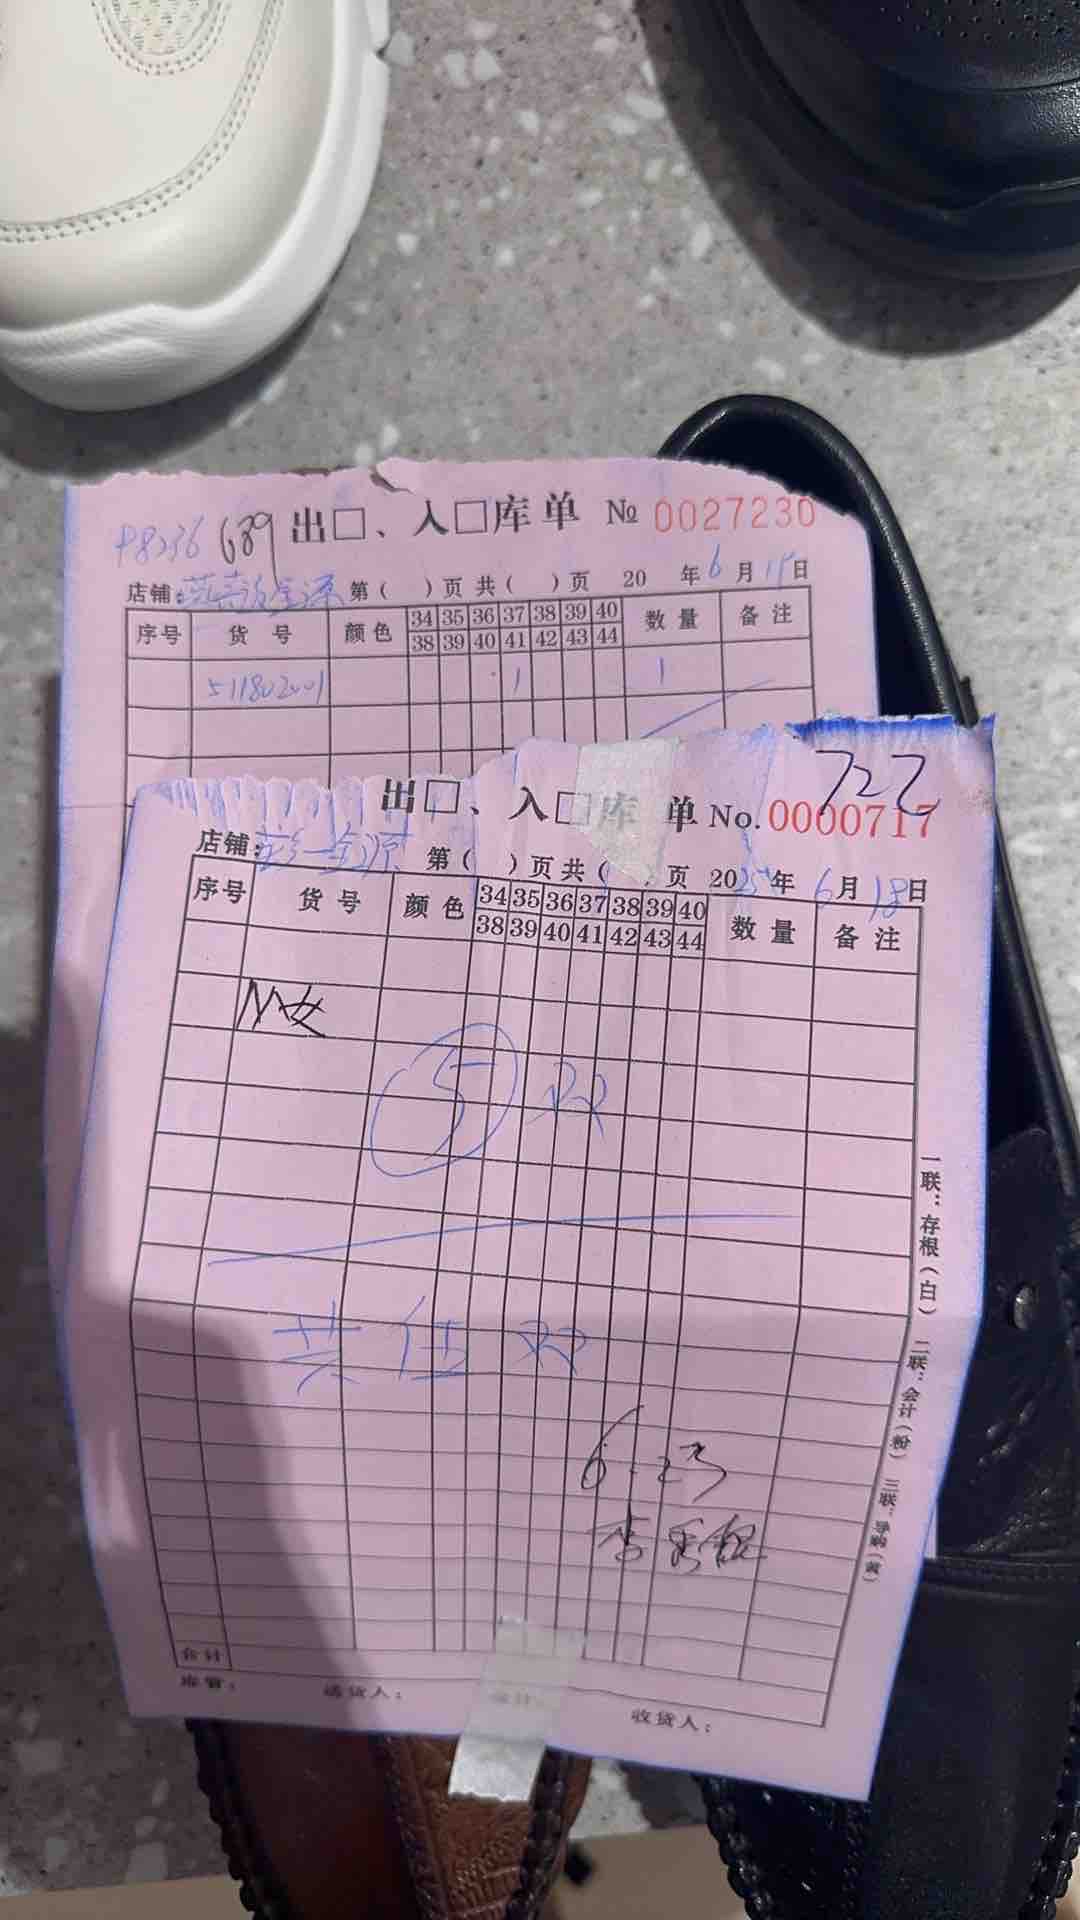 P8236 689 出□、入□库单 № 0027230
店铺: 金源 第( )页 共( )页 20 年 6 月 日
序号 货号 颜色 34 35 36 37 38 39 40 数量 备注
38 39 40 41 42 43 44
511802001 1 1
727
出□、入□库单 No. 0000717
店铺: 金源 第( )页 共( 页 2025年 6月 18日
序号 货号 颜色 34 35 36 37 38 39 40 数量 备注
38 39 40 41 42 43 44
M女
⑤ 双
共 伍 双
6.23
李
合计
库管: 送货人: 收货人:
一联:存根(白) 二联:会计(粉) 三联:导购(黄)